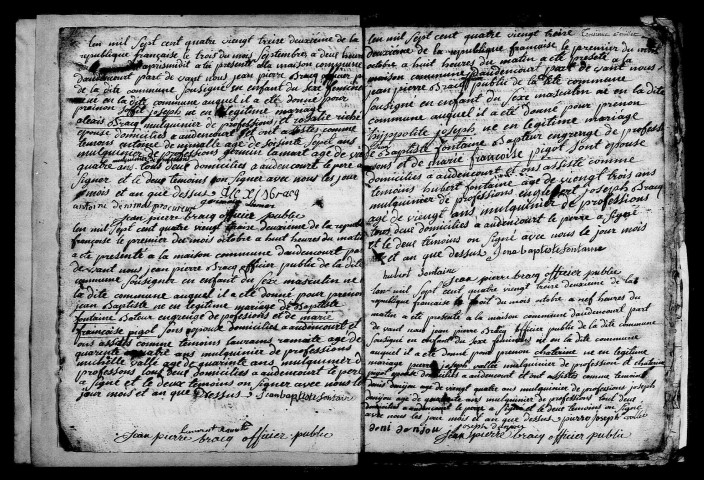 Len mil Sept cent quatre viengt treize deuxième de la
republique française le trois du mois Septembre a deux heure
apris midit a la maison commune
daudencourt part de vant nous jean pierre Bracq officier p
de la dite commune sousigné en enfant du Sexe feminin
né en la dite commune auquel il a eté donné pour
prainon joseph né en legitime mariage
alexis Bracq mulquinier de professions et rosalie riché
epouse domicilies a audencourt et ont assistes comme
temoins antoine de nimalle agé de soisente Sept ans
mulquinier de professions germain lamart agé de vient
quatre ans tous deux domicilies a audencourt le pere a
Signer et le deux temoins on Signer avec nous les jour
mois et an que dessus Alexis Bracq
antoine denimal procureur germain lamart
Jean pierre bracq officier public
Len mil Sept cent quatre viengt treize deuxieme de la republ
française le premier des mois octobre a huit heures du matin
a eté présenté a la maison commune daudencourt par
de vant nous jean pierre Bracq officier publi de la dite
commune Sousigner en enfant du Sexe masculin né en
la dite commune auquel il a eté donné pour prainon
jean Baptiste né en legitime mariage de Baptiste
fontaine Bateur engrengé de professions et de marie
françoise pigot Sous epoux domicilies a audencourt et
ons assistés comme temoins laurains ramette agé de
quarente quatre ans mulquinier de professions
michelle vallé agé de quarente ans mulquinier de
professions tous deux domicilies a audencourt le pere
a Signé et le deux temoins on Signer avec nous le
jour mois et an que Dessus Jeanbaptiste fontaine
laurent ramette
Jean pierre bracq officier public
Len mil Sept cent quatre viengt treize
deuxieme de la republique françoise le premier du mois
octobre a huit heures du matin a eté presenté a la
maison commune daudencourt part de vant nous
jean pierre Bracq officier public de la dite commune
Sousigné en enfant du Sexe masculin né en la dite
commune auquel il a eté donné pour prenon
hippolitte joseph né en legitime mariage
Baptiste fontaine Bapteur engrengé de profess
ions et de marie françoise pigot sont epouse
domicilies a audencourt et ons assisté comme
temoins hubert fontaine agé de viengt trois ans
mulquinier de professions joseph Bracq
agé de viengt ans mulquinier de professions
tous deux domicilies a audencourt le perre a Signé
et le deux temoins on Signé avec nous le jour mois
et an que dessus Jeanbaptiste fontaine
hubert fontaine
Jean pierre bracq officier public
Len mil Sept cent quatre viengt treize deuxieme de la
republique françoise le huit du mois octobre a neuf heures du
matin a eté presenté a la maison commune daudencourt part
de vant nous jean pierre Bracq officier public de la dite commune
Sousigné en enfant du Sexe feminins né en la dite commune
auquel il a eté donné pour prenon chaterine né en legitime
mariage pierre joseph vallée mulquinier de professions et chaterine
pigot domicilies a audencourt et ont assistes comme temoins denis
donjou agé de viengt quatre ans mulquinier de professions joseph
agé de quarante ans mulquinier de professions tout deux
domicilies a audencourt le perre a Signé et le deux temoins on Signé
avec nous les jour mois et an que dessus pierre joseph vallée
deni donjou joseph
Jean pierre bracq officier public